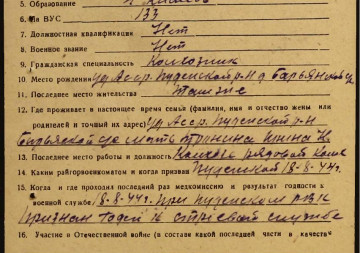 5. Образование
6. № ВУС 133
7. Должностная квалификация Нет
8. Военное звание Нет
9. Гражданская специальность Колхозник
10. Место рождения Уд Асср. Пудемской р-н д
11. Последнее место жительства
12. Где проживает в настоящее время семья (фамилия, имя и отчество жены или
родителей и точный их адрес) Уд Асср. Пудемской р-н
мать
13. Последнее место работы и должность рядовой
14. Каким райгорвоенкоматом и когда призван Пудемской 18-8-44г.
15. Когда и где проходил последний раз медкомиссию и результат годности в
военной службе 18-8-44г. При Пудемском РВК
Признан годен к строевой службе
16. Участие в Отечественной войне (в составе какой последней части в качестве